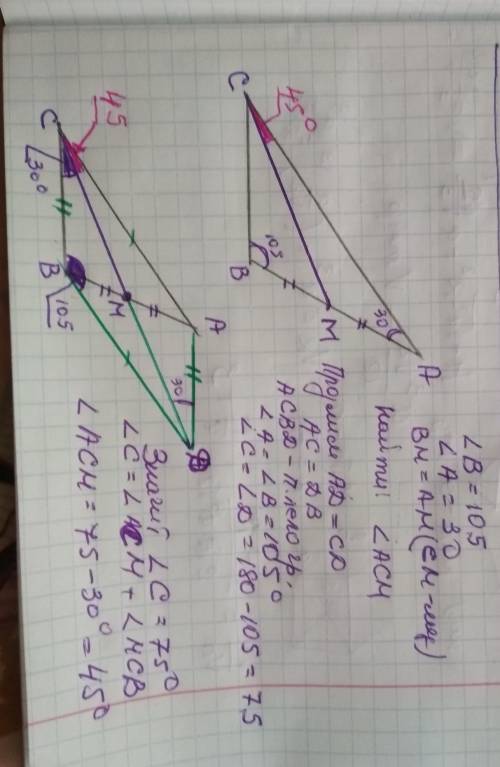 ∠B = 105
∠A = 30
BM = AM (CM-
Найти: ∠ACM
C
45°
103
B
M
30
A
AD =
AC = DB
ACBD -
∠A = ∠B = 105°
∠C = ∠D = 180 - 105 = 75
45
C
30°
B
105
M
A
30
D
Значит, ∠C = 75°
∠C = ∠ACM + ∠MCB
∠ACM = 75 - 30° = 45°